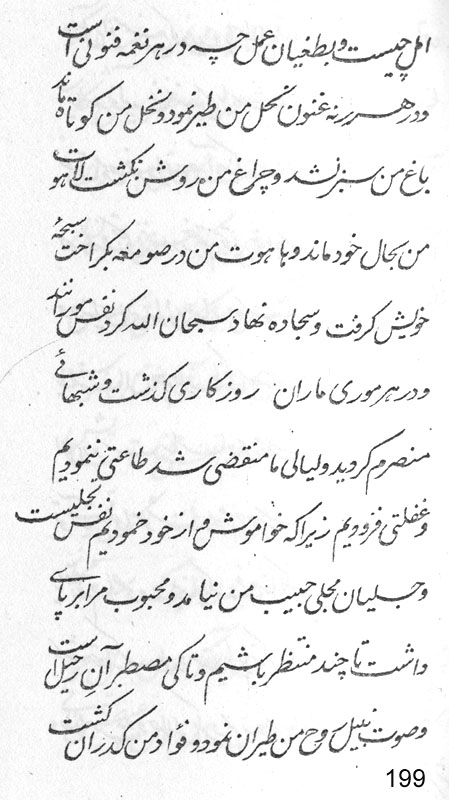 امل چیست و بطغیان عمل چه در هر نغمه فنونی است
و در هر رنه غنون نحل من طیر نمود و نخل من کوتاه ماند
باغ من سبز نشد و چراغ من روشن نکشت لاهوت
من بحال خود ماند و هاهوت من در صومعه بکر اخت سبحهٔ
خویش کرفت و سجاده نهاد سبحان الله کرد نفس مور انند
و در هر موری ماران روزکاری کذشت و شبهائے
منصرم کردید و لیالی ما منقضی شد طاعتی ننمودیم
و غفلتی فزودیم زیرا که خواموش و از خود خمودیم نفس تجلیست
و جلیان مجلی حبیب من نیامد و محبوب مرا بر پای
داشت تا چند منتظر باشیم و تا کی مصطبر آن رحیل است
و صوت نبیل روح من طیران نمود و فواد من کدران کشت
199